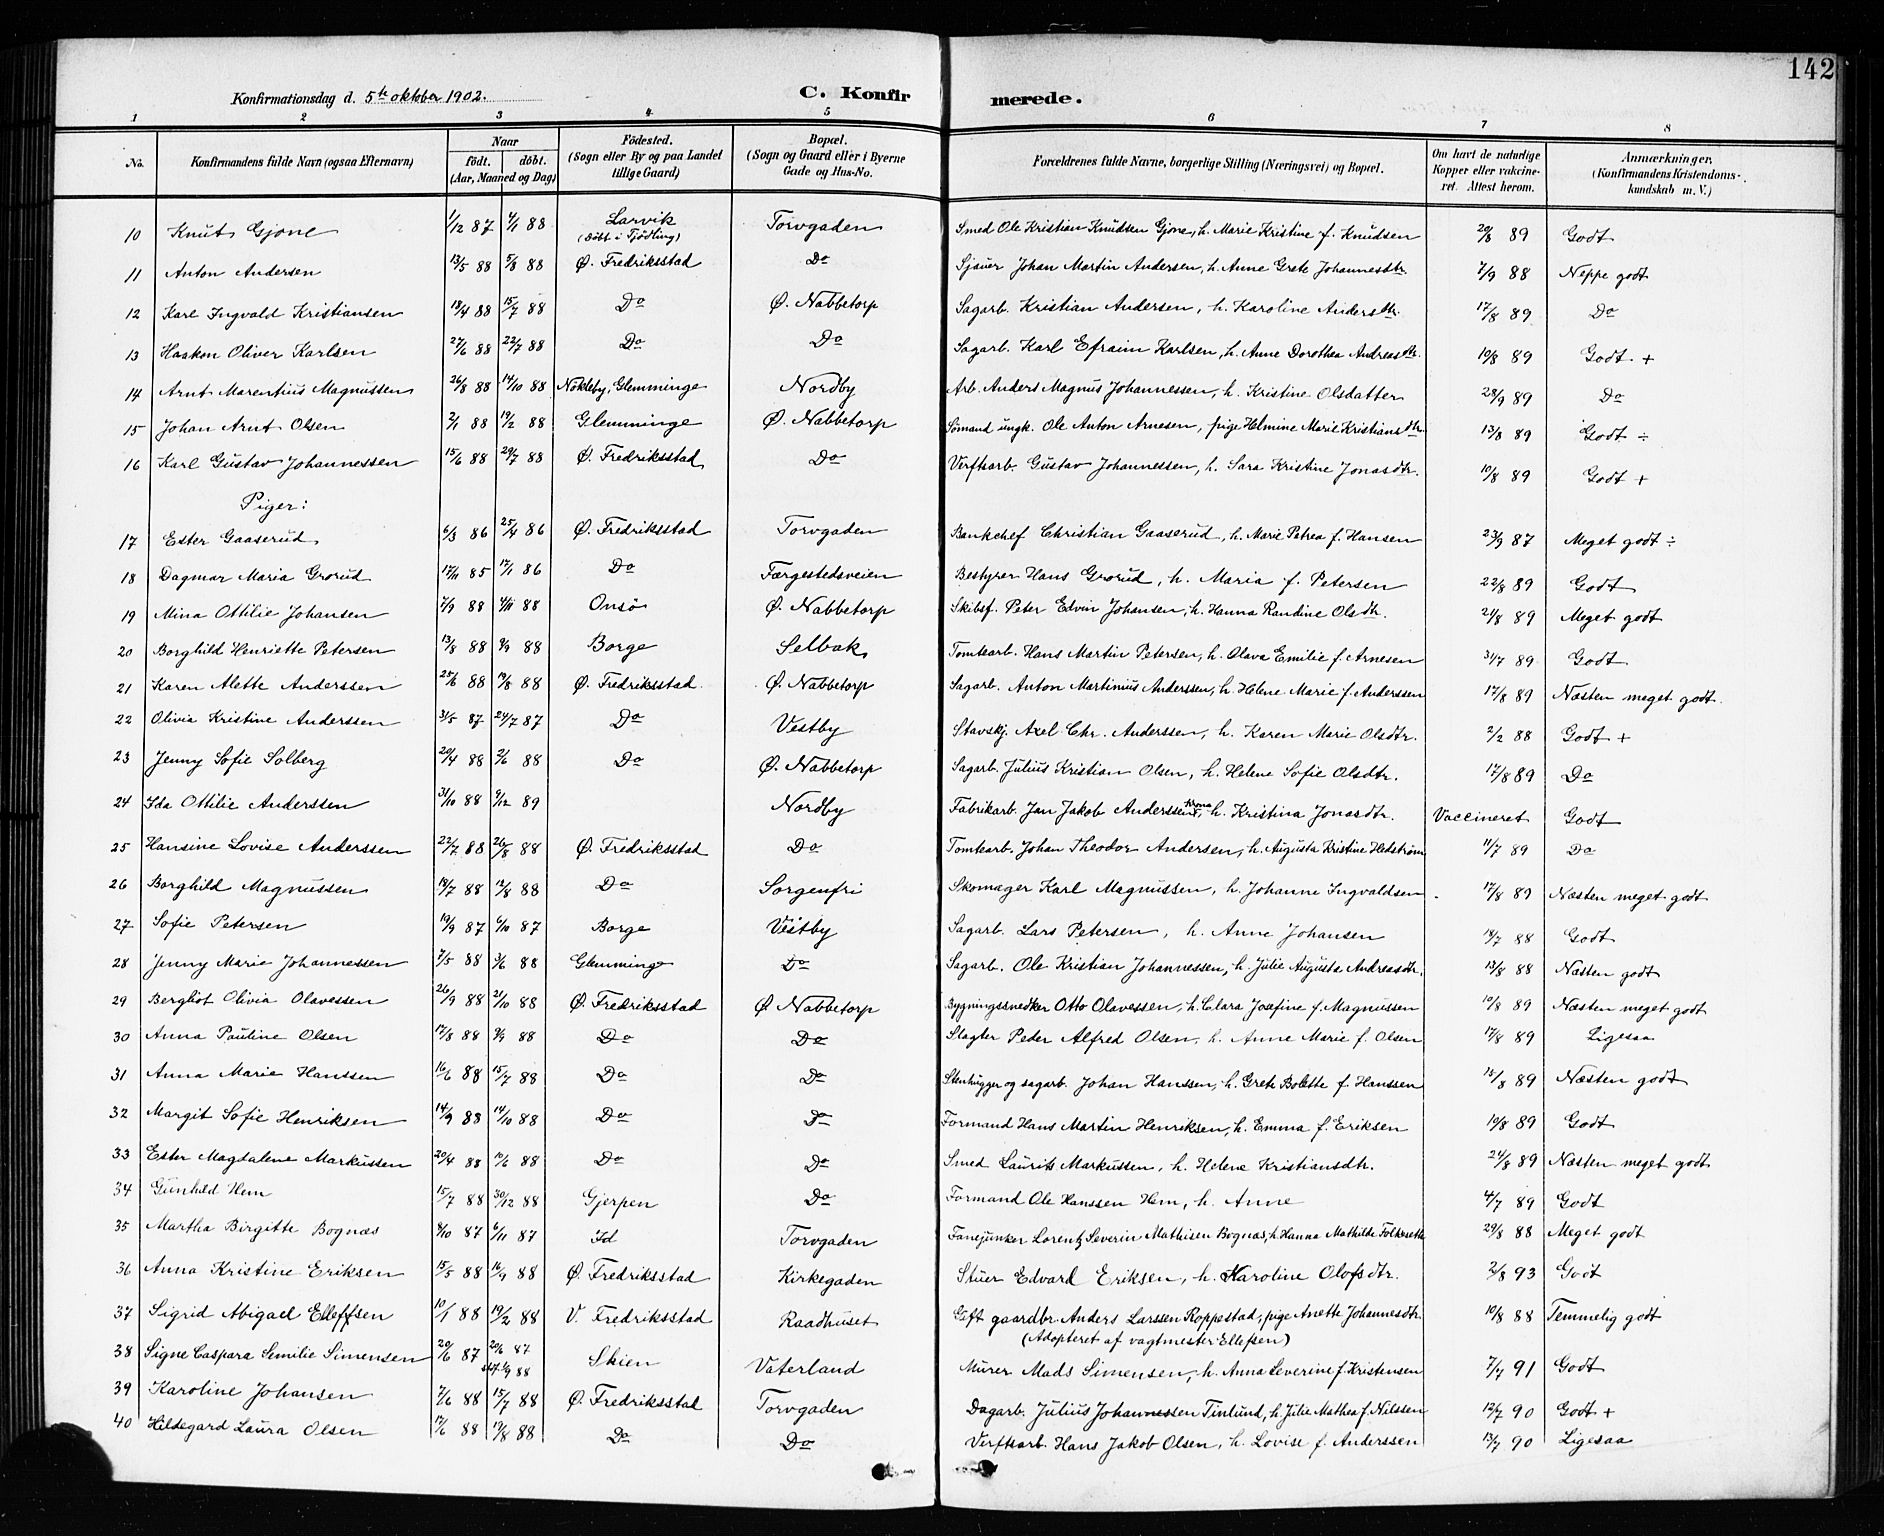 142
Konfirmationsdag d. 5te oktober 1902.
C. Konfirmerede.
1 2 3 4 5 6 7 8
No. | Konfirmandens fulde Navn (ogsaa Efternavn) | Naar født. døbt. (Aar, Maaned og Dag) | Födested. (Sogn eller By og paa Landet tillige Gaard) | Bopæl. (Sogn og Gaard eller i Byerne Gade og Hus-No. | Forældrenes fulde Navne, borgerlige Stilling (Næringsvei) og Bopæl. | Om havt de naturlige Kopper eller vakcineret. Attest herom. | Anmærkninger. (Konfirmandens Kristendomskundskab m. V.)
10 Knut Gjone 1/12 87 4/1 88 Larvik (döbt i Tjödling) Torvgaden Smed Ole Kristian Knudsen Gjone, h. Marie Kristine f. Knudsen 20/8 89 Godt
11 Anton Andersen 13/5 88 5/8 88 Ø. Fredriksstad Do Sjauer Johan Martin Andersen, h. Anne Grete Johannesdtr. 7/9 88 Neppe godt
12 Karl Ingvald Kristiansen 18/4 88 15/7 88 Do Ø. Nabbetorp Sagarb. Kristian Andersen, h. Karoline Andersdtr. 17/8 89 Do
13 Haakon Oliver Karlsen 27/6 88 22/7 88 Do Do Sagarb. Karl Efraim Karlsen, h. Anne Dorothea Andreasdtr. 10/8 89 Godt +
14 Arnt Marentius Magnussen 26/8 88 14/10 88 Nökleby, Glemminge Nordby Arb. Anders Magnus Johannessen, h. Kristine Olsdatter 28/9 89 Do
15 Johan Arnt Olsen 2/1 88 19/2 88 Glemminge Ø. Nabbetorp Sömand ungk. Ole Anton Arnesen, pige Helmine Marie Kristiansdtr. 13/8 89 Godt ÷
16 Karl Gustav Johannessen 15/6 88 29/7 88 Ø. Fredriksstad Do Verftsarb. Gustav Johannessen, h. Sara Kristine Jonasdtr. 10/8 89 Godt +
Piger:
17 Ester Gaaserud 6/3 86 25/4 86 Ø. Fredriksstad Torvgaden Bankchef Christian Gaaserud, h. Marie Petrea f. Hansen 23/9 87 Meget godt ÷
18 Dagmar Maria Grorud 17/11 85 17/1 86 Do Færgestedsveien Bestyrer Hans Grorud, h. Maria f. Petersen 22/8 89 Godt
19 Mina Ottilie Johansen 7/9 88 4/11 88 Onsö Ø. Nabbetorp Skibsf. Peter Edvin Johansen, h. Hanna Randine Olsdtr. 21/8 89 Meget godt
20 Borghild Henriette Petersen 13/8 88 9/9 88 Borge Selbak Tomtearb. Hans Martin Petersen, h. Olava Emilie f. Arnesen 31/7 89 Godt
21 Karen Alette Anderssen 25/6 88 19/8 88 Ø. Fredriksstad Ø. Nabbetorp Sagarb. Anton Martinius Anderssen, h. Helene Marie f. Anderssen 17/8 89 Næsten meget godt
22 Olivia Kristine Anderssen 31/5 87 24/7 87 Do Vestby Stavskj. Axel Chr. Anderssen, h. Karen Marie Olsdtr. 2/2 88 Godt +
23 Jenny Sofie Solberg 20/4 88 2/6 88 Do Ø. Nabbetorp Sagarb. Julius Kristian Olsen, h. Helene Sofie Olsdtr. 17/8 89 Do
24 Ida Ottilie Anderssen 31/10 88 9/12 89 Nordby Fabrikarb. Jan Jakob Anderssen, h. Kristina Jonasdtr. Vaccineret Godt
25 Hansine Lovise Anderssen 22/7 88 26/8 88 Ø. Fredriksstad Do Tomtearb. Johan Theodor Andersen, h. Augusta Kristine Hedström 11/7 89 Do
26 Borghild Magnussen 18/7 88 12/8 88 Do Sorgenfri Skomager Karl Magnussen, h. Johanne Ingvaldsen 17/8 89 Næsten meget godt
27 Sofie Petersen 19/9 87 6/10 87 Borge Vestby Sagarb. Lars Petersen, h. Anne Johansen 18/7 88 Godt
28 Jenny Marie Johannessen 7/5 88 3/6 88 Glemminge Do Sagarb. Ole Kristian Johannessen, h. Julie Augusta Andreasdtr. 13/8 88 Næsten godt
29 Bergliot Olivia Olavessen 26/9 88 21/10 88 Ø. Fredriksstad Ø. Nabbetorp Bygningssnedker Otto Olavessen, h. Clara Josefine f. Magnussen 10/8 89 Næsten meget godt
30 Anna Pauline Olsen 17/8 88 9/9 88 Do Do Slagter Peder Alfred Olsen, h. Anne Marie f. Olsen 17/8 89 Ligesaa
31 Anna Marie Hanssen 16/6 88 15/7 88 Do Do Stenhugger og sagarb. Johan Hanssen, h. Grete Bolette f. Hanssen 15/8 89 Næsten godt
32 Margit Sofie Henriksen 14/9 88 14/10 88 Do Do Formand Hans Martin Henriksen, h. Emma f. Eriksen 10/8 89 Godt
33 Ester Magdalene Markussen 20/4 88 10/6 88 Do Do Smed Laurits Markussen, h. Helene Kristiansdtr. 24/8 89 Næsten meget godt
34 Gunhild Hem 15/7 88 30/12 88 Gjerpen Do Formand Ole Hanssen Hem, h. Anne 4/7 89 Godt
35 Martha Birgitte Bognæs 8/10 87 6/11 87 Id Torvgaden Fanejunker Lorentz Severin Mathisen Bognæs, h. Hanna Mathilde 29/8 88 Meget godt
36 Anna Kristine Eriksen 15/5 88 16/9 88 Ø. Fredriksstad Kirkegaden Stuer Edvard Eriksen, h. Karoline Olofsdtr. 2/8 93 Godt
37 Sigrid Abigael Elleffsen 10/1 88 19/2 88 V. Fredriksstad Raadhuset Gift gaardbr. Anders Larssen Roppestad, pige Anette Johannesdtr. 10/8 88 Temmelig godt
(Adopteret af vagtmester Ellefsen)
38 Signe Caspara Semilie Simensen 20/6 87 20/6 87 Skien Vaterland Murer Mads Simensen, h. Anna Severine f. Kristensen 7/7 91 Godt
39 Karoline Johansen 7/6 88 15/7 88 Ø. Fredriksstad Torvgaden Dagarb. Julius Johannessen Tinlund, h. Julie Mathea f. Nilssen 12/7 90 Godt +
40 Hildegard Laura Olsen 17/6 88 19/8 88 Do Do Verftsarb. Hans Jakob Olsen, h. Lovise f. Anderssen 13/7 90 Ligesaa